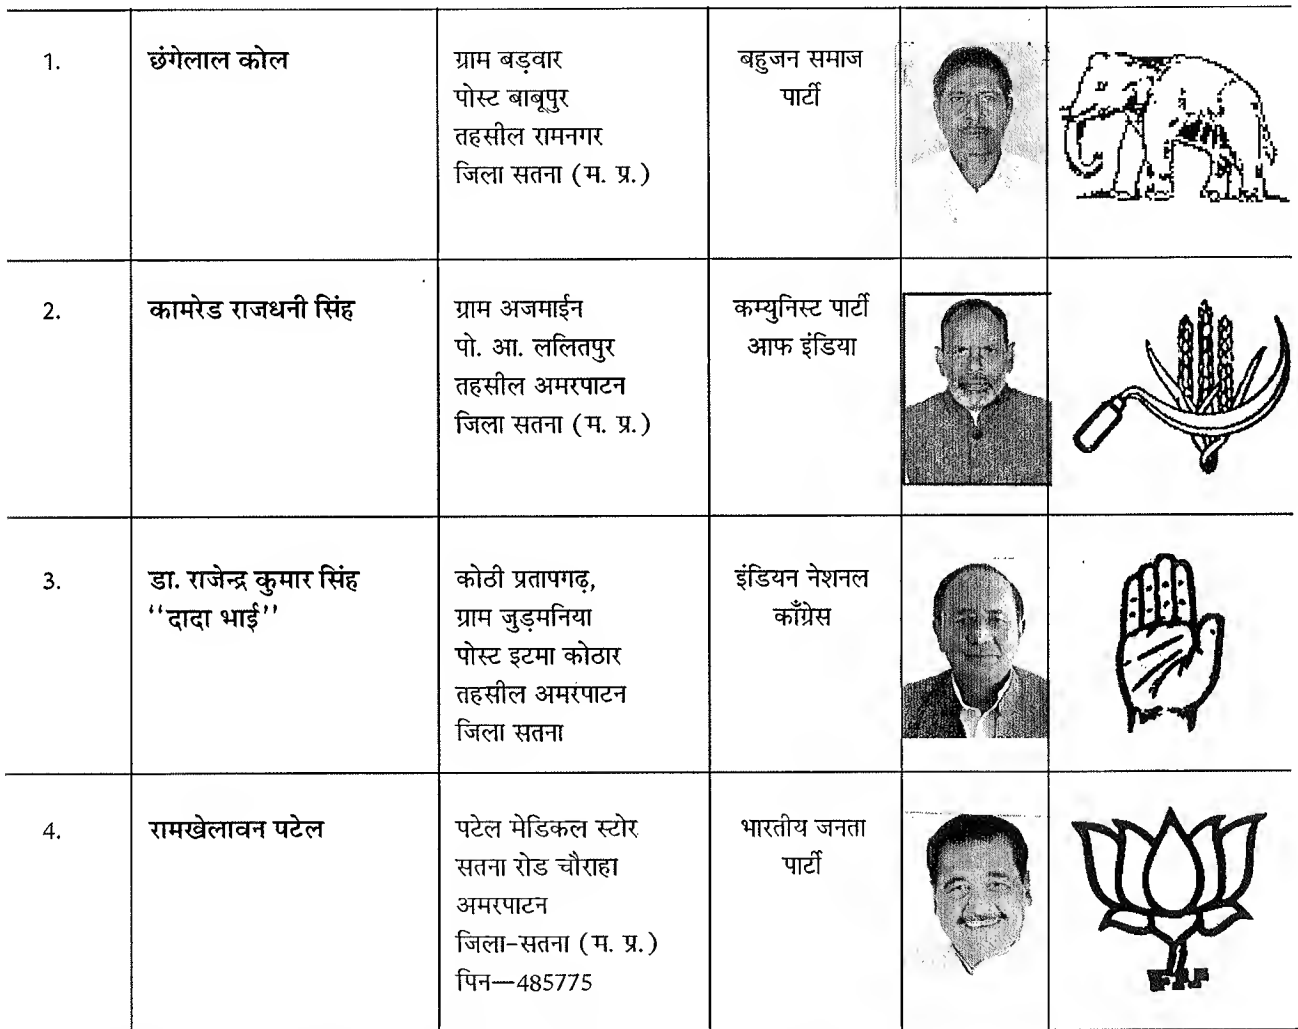 1.
छंगेलाल कोल
ग्राम बड़वार
पोस्ट बाबूपुर
तहसील रामनगर
जिला सतना (म. प्र.)
बहुजन समाज
पार्टी
2.
कामरेड राजधनी सिंह
ग्राम अजमाईन
पो. आ. ललितपुर
तहसील अमरपाटन
जिला सतना (म. प्र.)
कम्युनिस्ट पार्टी
आफ इंडिया
3.
डा. राजेन्द्र कुमार सिंह
‘‘दादा भाई’’
कोठी प्रतापगढ़,
ग्राम जुड़मनिया
पोस्ट इटमा कोठार
तहसील अमरपाटन
जिला सतना
इंडियन नेशनल
काँग्रेस
4.
रामखेलावन पटेल
पटेल मेडिकल स्टोर
सतना रोड चौराहा
अमरपाटन
जिला-सतना (म. प्र.)
पिन—485775
भारतीय जनता
पार्टी